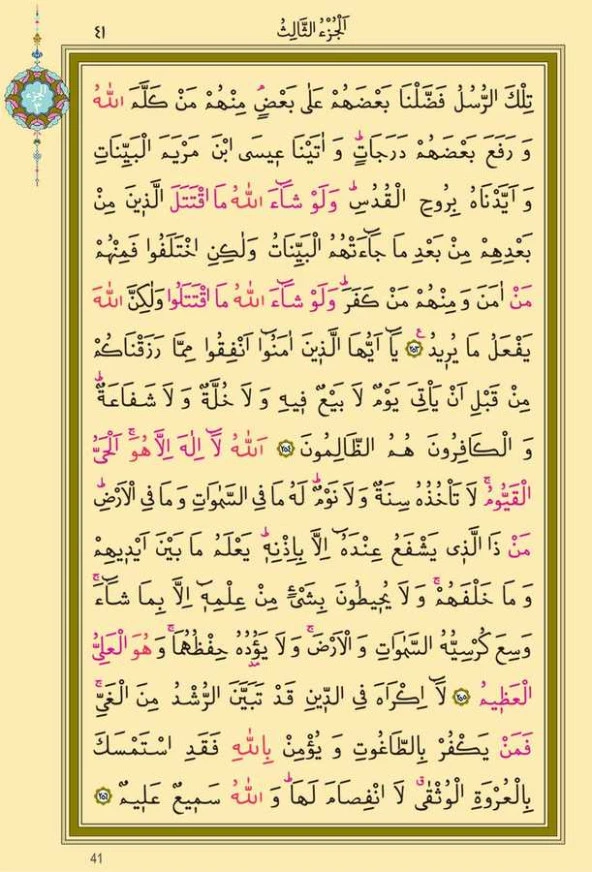 ٤١ اَلْجُزْءُ الثَّالِثُ
اَلْجُزْءُ
٣
تِلْكَ الرُّسُلُ فَضَّلْنَا بَعْضَهُمْ عَلٰى بَعْضٍۢ مِنْهُمْ مَنْ كَلَّمَ اللّٰهُ
وَ رَفَعَ بَعْضَهُمْ دَرَجَاتٍۜ وَ اٰتَيْنَا عٖيسَى ابْنَ مَرْيَمَ الْبَيِّنَاتِ
وَ اَيَّدْنَاهُ بِرُوحِ الْقُدُسِۜ وَلَوْ شَٓاءَ اللّٰهُ مَا اقْتَتَلَ الَّذٖينَ مِنْ
بَعْدِهِمْ مِنْ بَعْدِ مَا جَٓاءَتْهُمُ الْبَيِّنَاتُ وَلٰكِنِ اخْتَلَفُوا فَمِنْهُمْ
مَنْ اٰمَنَ وَ مِنْهُمْ مَنْ كَفَرَۜ وَلَوْ شَٓاءَ اللّٰهُ مَا اقْتَتَلُوا وَلٰكِنَّ اللّٰهَ
يَفْعَلُ مَا يُرٖيدُࣖ ﴿٢٥٣﴾ يَٓا اَيُّهَا الَّذٖينَ اٰمَنُٓوا اَنْفِقُوا مِمَّا رَزَقْنَاكُمْ
مِنْ قَبْلِ اَنْ يَأْتِىَ يَوْمٌ لَا بَيْعٌ فٖيهِ وَ لَا خُلَّةٌ وَ لَا شَفَاعَةٌۜ
وَ الْكَافِرُونَ هُمُ الظَّالِمُونَ ﴿٢٥٤﴾ اَللّٰهُ لَٓا اِلٰهَ اِلَّا هُوَۚ اَلْحَىُّ
الْقَيُّومُۚ لَا تَأْخُذُهُ سِنَةٌ وَ لَا نَوْمٌۜ لَهُ مَا فِى السَّمٰوَاتِ وَ مَا فِى الْاَرْضِۜ
مَنْ ذَا الَّذٖى يَشْفَعُ عِنْدَهُٓ اِلَّا بِاِذْنِهٖۜ يَعْلَمُ مَا بَيْنَ اَيْدٖيهِمْ
وَ مَا خَلْفَهُمْۚ وَ لَا يُحٖيطُونَ بِشَىْءٍ مِنْ عِلْمِهٖٓ اِلَّا بِمَا شَٓاءَۚ
وَسِعَ كُرْسِيُّهُ السَّمٰوَاتِ وَ الْاَرْضَۚ وَ لَا يَؤُدُهُ حِفْظُهُمَاۚ وَ هُوَ الْعَلِىُّ
الْعَظٖيمُ ﴿٢٥٥﴾ لَٓا اِكْرَاهَ فِى الدّٖينِ قَدْ تَبَيَّنَ الرُّشْدُ مِنَ الْغَىِّۚ
فَمَنْ يَكْفُرْ بِالطَّاغُوتِ وَ يُؤْمِنْ بِاللّٰهِ فَقَدِ اسْتَمْسَكَ
بِالْعُرْوَةِ الْوُثْقٰىۗ لَا انْفِصَامَ لَهَاۜ وَ اللّٰهُ سَمٖيعٌ عَلٖيمٌ ﴿٢٥٦﴾
41